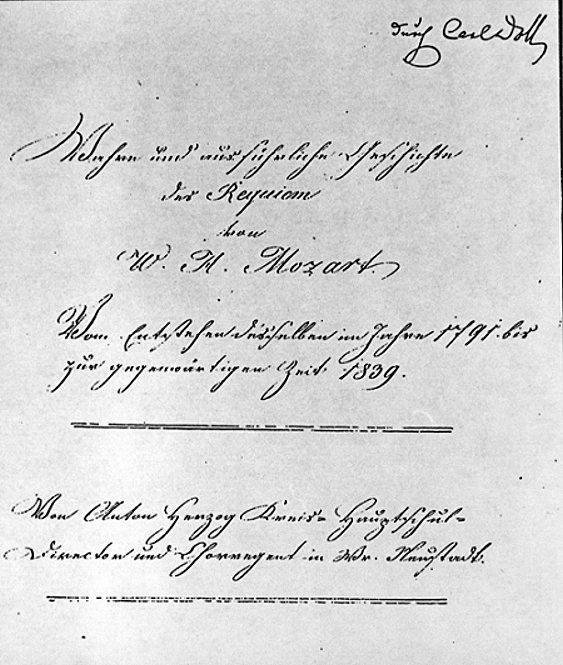 durch Carl
Wahre und ausführliche Geschichte
des Requiem
von
W. A. Mozart.
Vom Entstehen desselben im Jahre 1791. bis
zur gegenwärtigen Zeit 1839.
Von Anton Herzog Kreis= Hauptschul=
Director und Chorregent in Wr. Neustadt.